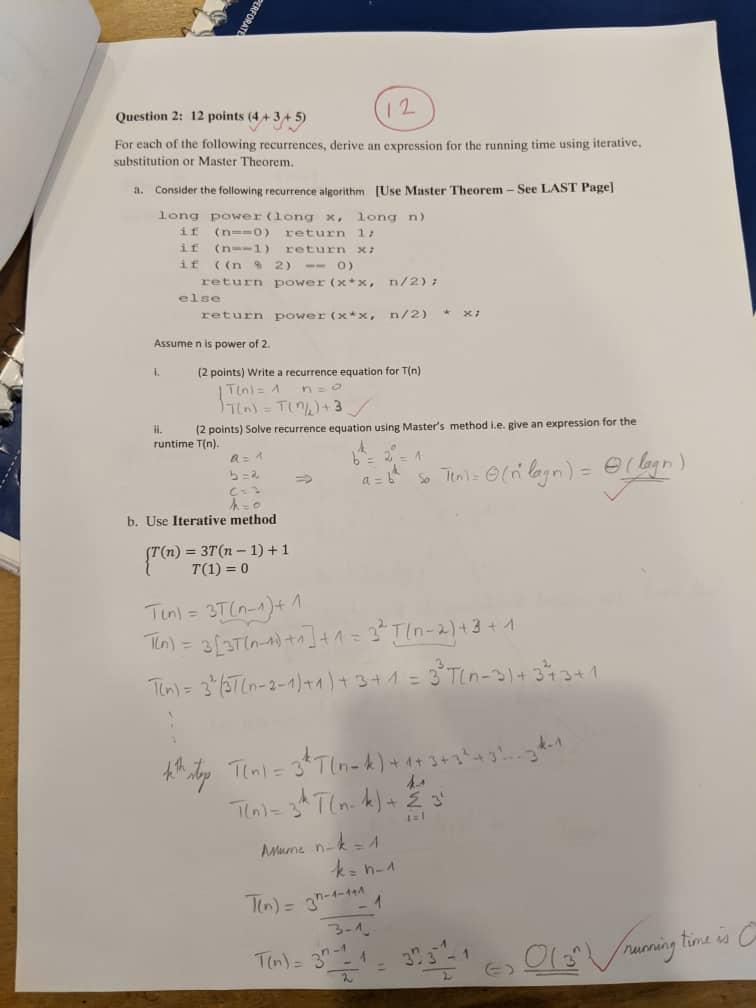 PERFORATE
Question 2: 12 points (4 + 3 + 5)
12
For each of the following recurrences, derive an expression for the running time using iterative,
substitution or Master Theorem.
a. Consider the following recurrence algorithm [Use Master Theorem – See LAST Page]
long power(long x, long n)
if (n==0) return 1;
if (n==1) return x;
if ((n % 2) == 0)
return power(x*x, n/2);
else
return power(x*x, n/2) * x;
Assume n is power of 2.
i. (2 points) Write a recurrence equation for T(n)
T(n) = 1 n = 0
T(n) = T(n/2) + 3
ii. (2 points) Solve recurrence equation using Master's method i.e. give an expression for the
runtime T(n).
a = 1
b = 2
c = 3
k = 0
⇒
b^k = 2^0 = 1
a = b^k so T(n) = Θ(n^0 log n) = Θ(log n)
b. Use Iterative method
T(n) = 3T(n − 1) + 1
T(1) = 0
T(n) = 3T(n-1) + 1
T(n) = 3[3T(n-1-1)+1]+1 = 3^2 T(n-2)+3+1
T(n) = 3^2(3T(n-2-1)+1)+3+1 = 3^3 T(n-3)+3^2+3+1
kth step T(n) = 3^k T(n-k)+1+3+3^2+3^i...3^k-1
T(n) = 3^k T(n-k) + k-1 Σ i=1 3^i
Assume n-k = 1
k = n-1
T(n) = 3^n-1-1+1 - 1
3-1
T(n) = 3^n-1 - 1 / 2 = 3^n . 3^-1 - 1 / 2 ⇔ O(3^n) running time is O